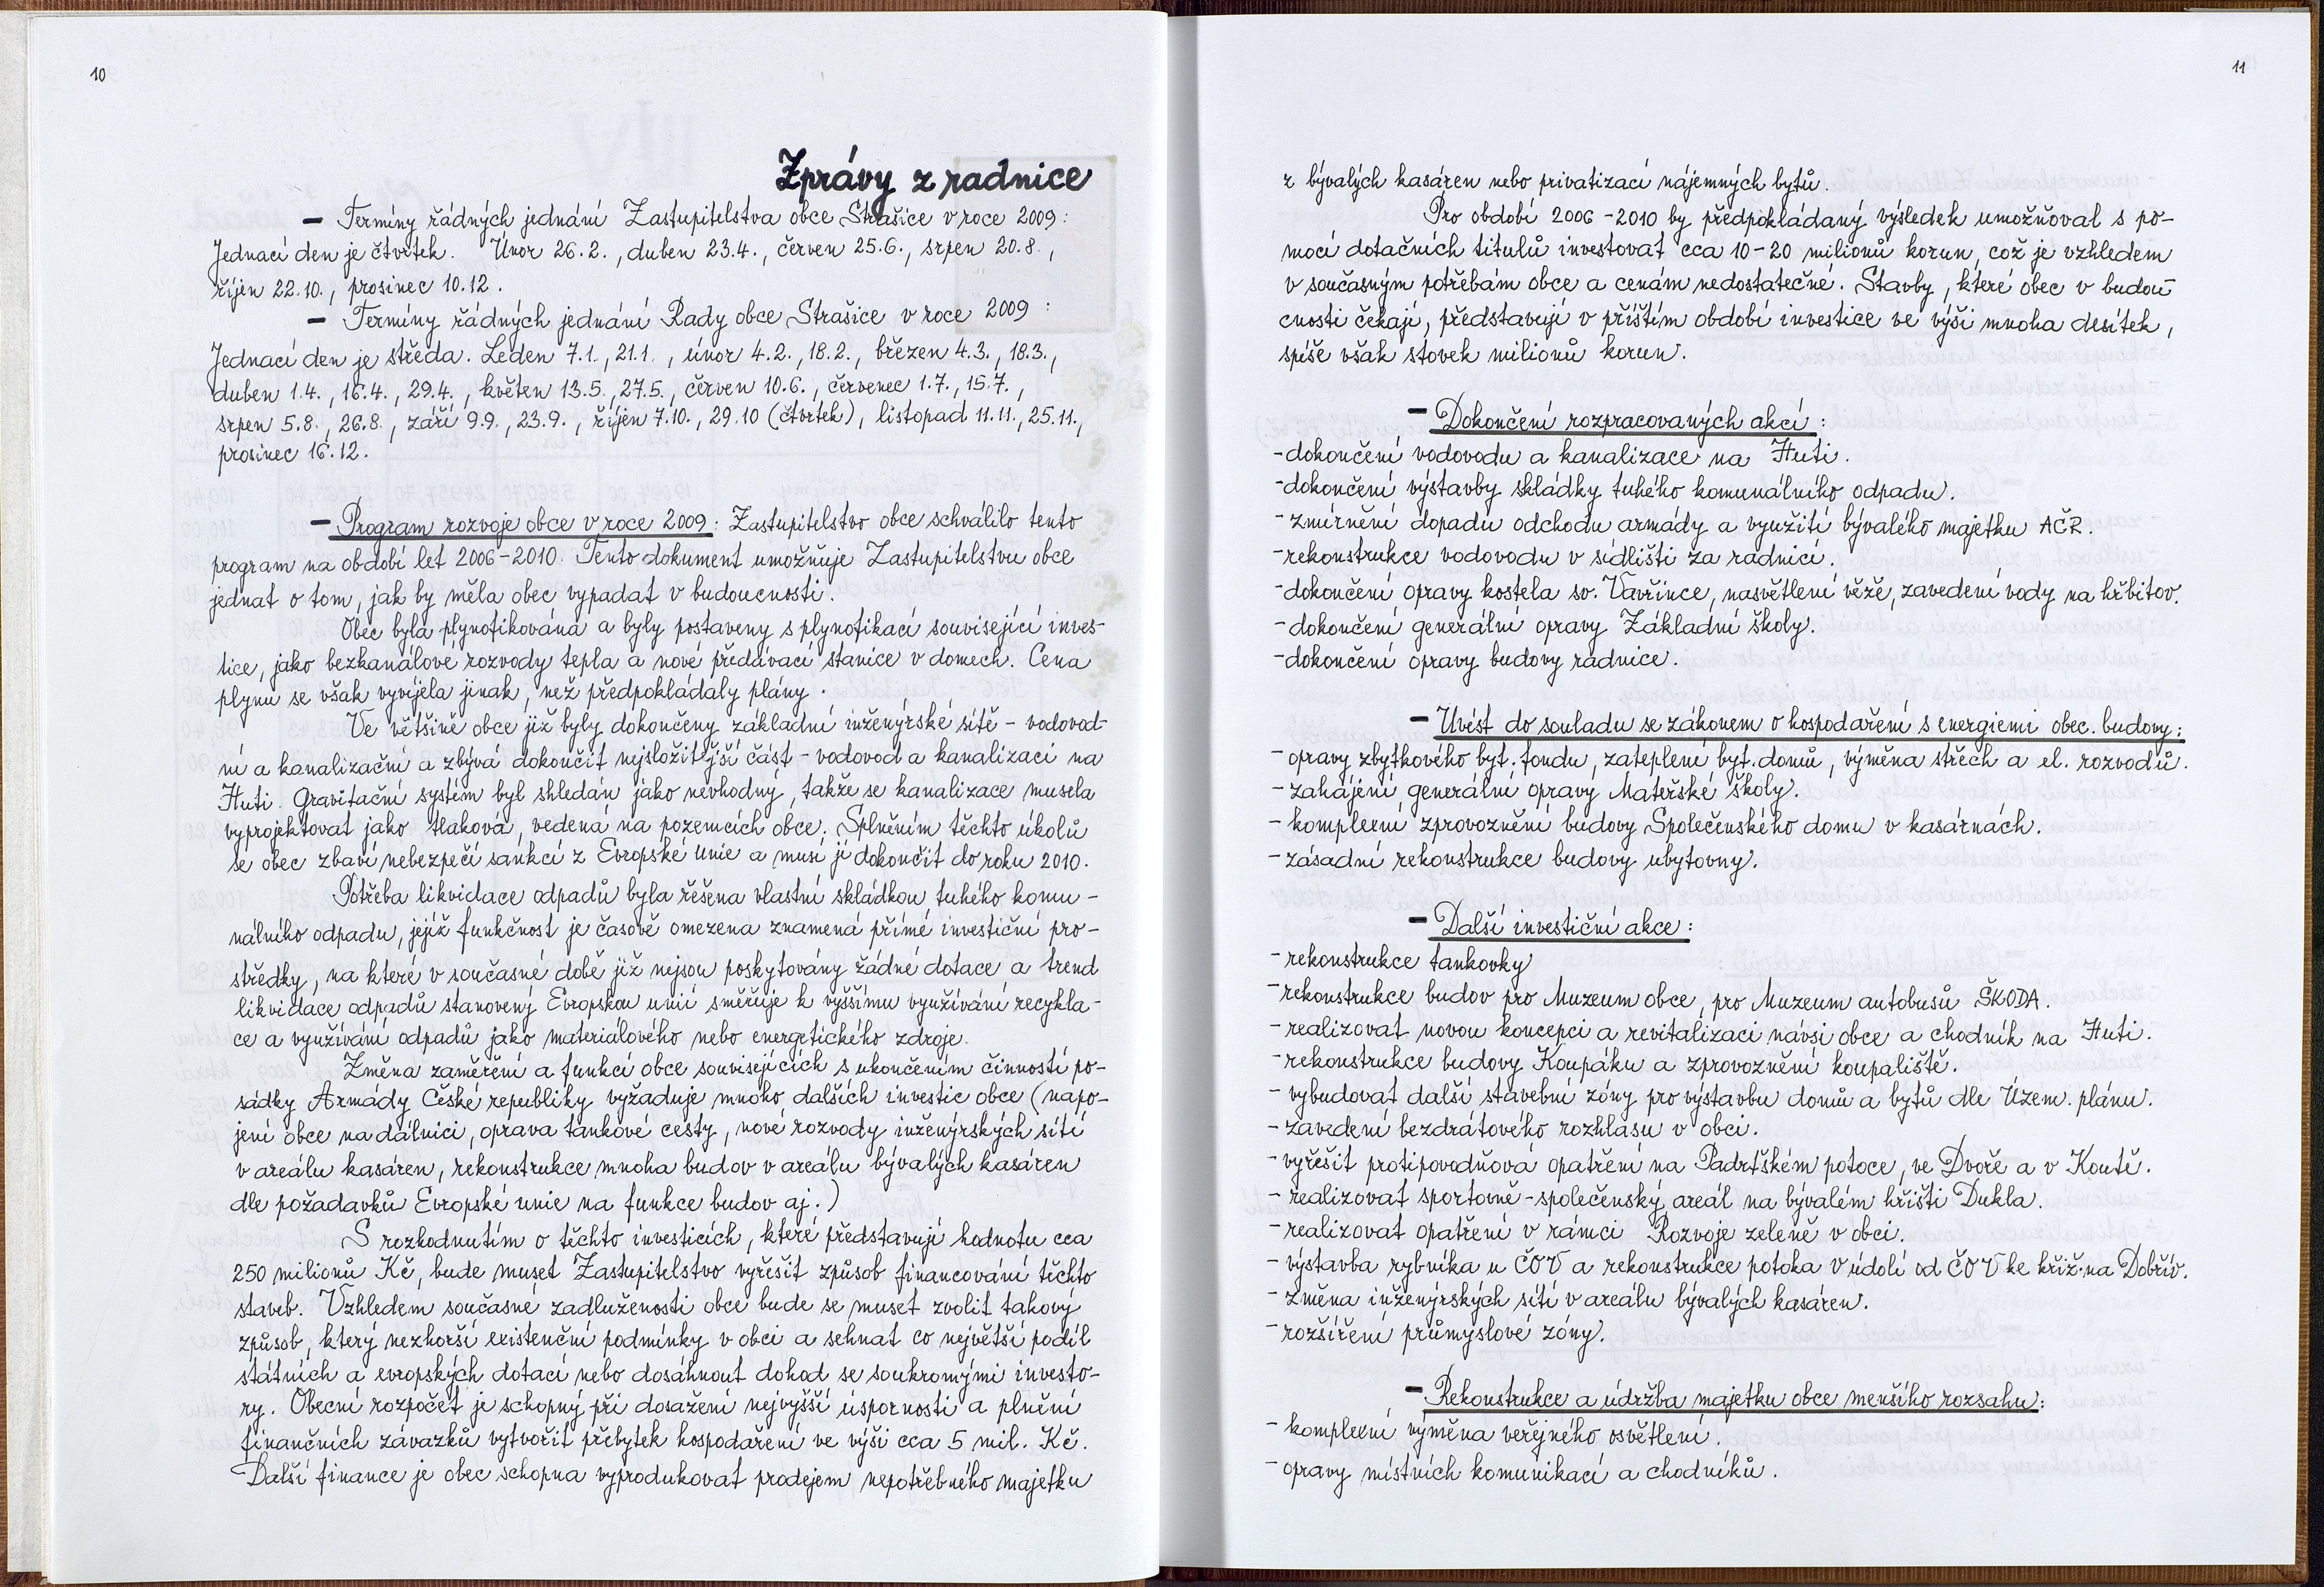 10
Zprávy z radnice
– Termíny řádných jednání Zastupitelstva obce Strašice v roce 2009:
Jednací den je čtvrtek. Únor 26.2., duben 23.4., červen 25.6., srpen 20.8.,
říjen 22.10., prosinec 10.12.
– Termíny řádných jednání Rady obce Strašice v roce 2009 :
Jednací den je středa. Leden 7.1., 21.1., únor 4.2., 18.2., březen 4.3., 18.3.,
duben 1.4., 16.4., 29.4., květen 13.5., 27.5., červen 10.6., červenec 1.7., 15.7.,
srpen 5.8., 26.8., září 9.9., 23.9., říjen 7.10., 29.10 (čtvrtek), listopad 11.11., 25.11.,
prosinec 16.12.
– Program rozvoje obce v roce 2009: Zastupitelstvo obce schválilo tento
program na období let 2006-2010. Tento dokument umožňuje Zastupitelstvu obce
jednat o tom, jak by měla obec vypadat v budoucnosti.
Obec byla plynofikována a byly postaveny s plynofikací související inves-
tice, jako bezkanálové rozvody tepla a nové předávací stanice v domech. Cena
plynu se však vyvíjela jinak, než předpokládaly plány.
Ve většině obce již byly dokončeny základní inženýrské sítě - vodovod-
ní a kanalizační a zbývá dokončit nejsložitější část - vodovod a kanalizaci na
Huti. Gravitační systém byl shledán jako nevhodný, takže se kanalizace musela
vyprojektovat jako tlaková, vedená na pozemcích obce. Splněním těchto úkolů
se obec zbaví nebezpečí sankcí z Evropské unie a musí ji dokončit do roku 2010.
Potřeba likvidace odpadů byla řešena vlastní skládkou tuhého komu-
nálního odpadu, jejíž funkčnost je časově omezena znamená přímé investiční pro-
středky, na které v současné době již nejsou poskytovány žádné dotace a trend
likvidace odpadů stanovený Evropskou unií směřuje k vyššímu využívání recykla-
ce a využívání odpadů jako materiálového nebo energetického zdroje.
Změna zaměření a funkcí obce souvisejících s ukončením činností po-
sádky Armády České republiky vyžaduje mnoho dalších investic obce (napo-
jení obce na dálnici, oprava tankové cesty, nové rozvody inženýrských sítí
v areálu kasáren, rekonstrukce mnoha budov v areálu bývalých kasáren
dle požadavků Evropské unie na funkce budov aj.)
S rozhodnutím o těchto investicích, které představují hodnotu cca
250 milionů Kč, bude muset Zastupitelstvo vyřešit způsob financování těchto
staveb. Vzhledem současné zadluženosti obce bude se muset zvolit takový
způsob, který nezhorší existenční podmínky v obci a sehnat co největší podíl
státních a evropských dotací nebo dosáhnout dohod se soukromými investo-
ry. Obecní rozpočet je schopný při dosažení nejvyšší úspornosti a plnění
finančních závazků vytvořit přebytek hospodaření ve výši cca 5 mil. Kč.
Další finance je obec schopna vyprodukovat prodejem nepotřebného majetku
11
z bývalých kasáren nebo privatizací nájemných bytů.
Pro období 2006-2010 by předpokládaný výsledek umožňoval s po-
mocí dotačních titulů investovat cca 10-20 milionů korun, což je vzhledem
v současným potřebám obce a cenám nedostatečné. Stavby, které obec v budou-
cnosti čekají, představují v příštím období investice ve výši mnoha desítek,
spíše však stovek milionů korun.
– Dokončení rozpracovaných akcí:
-dokončení vodovodu a kanalizace na Huti.
-dokončení výstavby skládky tuhého komunálního odpadu.
-zmírnění dopadu odchodu armády a využití bývalého majetku AČR.
-rekonstrukce vodovodu v sídlišti za radnicí.
-dokončení opravy kostela sv. Vavřince, nasvětlení věže, zavedení vody na hřbitov.
-dokončení generální opravy Základní školy.
-dokončení opravy budovy radnice.
– Uvést do souladu se zákonem o hospodaření s energiemi obec. budovy:
- opravy zbytkového byt. fondu, zateplení byt. domů, výměna střech a el. rozvodů.
- zahájení generální opravy Mateřské školy.
- komplexní zprovoznění budovy Společenského domu v kasárnách.
- zásadní rekonstrukce budovy ubytovny.
– Další investiční akce:
- rekonstrukce tankovky
- rekonstrukce budov pro Muzeum obce, pro Muzeum autobusů ŠKODA.
- realizovat novou koncepci a revitalizaci návsi obce a chodník na Huti.
- rekonstrukce budovy Koupáku a zprovoznění koupaliště.
- vybudovat další stavební zóny pro výstavbu domů a bytů dle Územ. plánu.
- zavedení bezdrátového rozhlasu v obci.
- vyřešit protipovodňová opatření na Padrťském potoce, ve Dvoře a v Koutě.
- realizovat sportovně-společenský areál na bývalém hřišti Dukla.
- realizovat opatření v rámci Rozvoje zeleně v obci.
- výstavba rybníka u ČOV a rekonstrukce potoka v údolí od ČOV ke křiž. na Dobřív.
- změna inženýrských sítí v areálu bývalých kasáren.
- rozšíření průmyslové zóny.
– Rekonstrukce a údržba majetku obce menšího rozsahu:
- komplexní výměna veřejného osvětlení.
- opravy místních komunikací a chodníků.